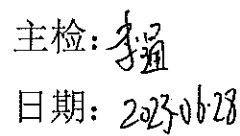 主检：李通
日期：2023.06.28